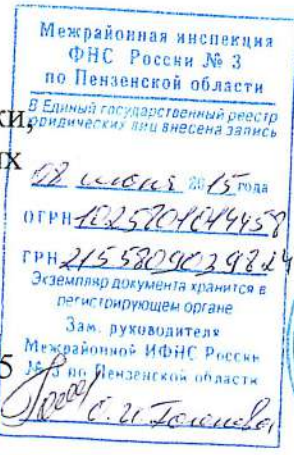 Межрайонная инспекция
ФНС России № 3
по Пензенской области
В Единый государственный реестр
юридических лиц внесена запись
ки,
их
08 июня 2015 года
ОГРН 1025801014458
ГРН 2155809039824
Экземпляр документа хранится в
регистрирующем органе
Зам. руководителя
Межрайонной ИФНС России
№ 3 по Пензенской области
5